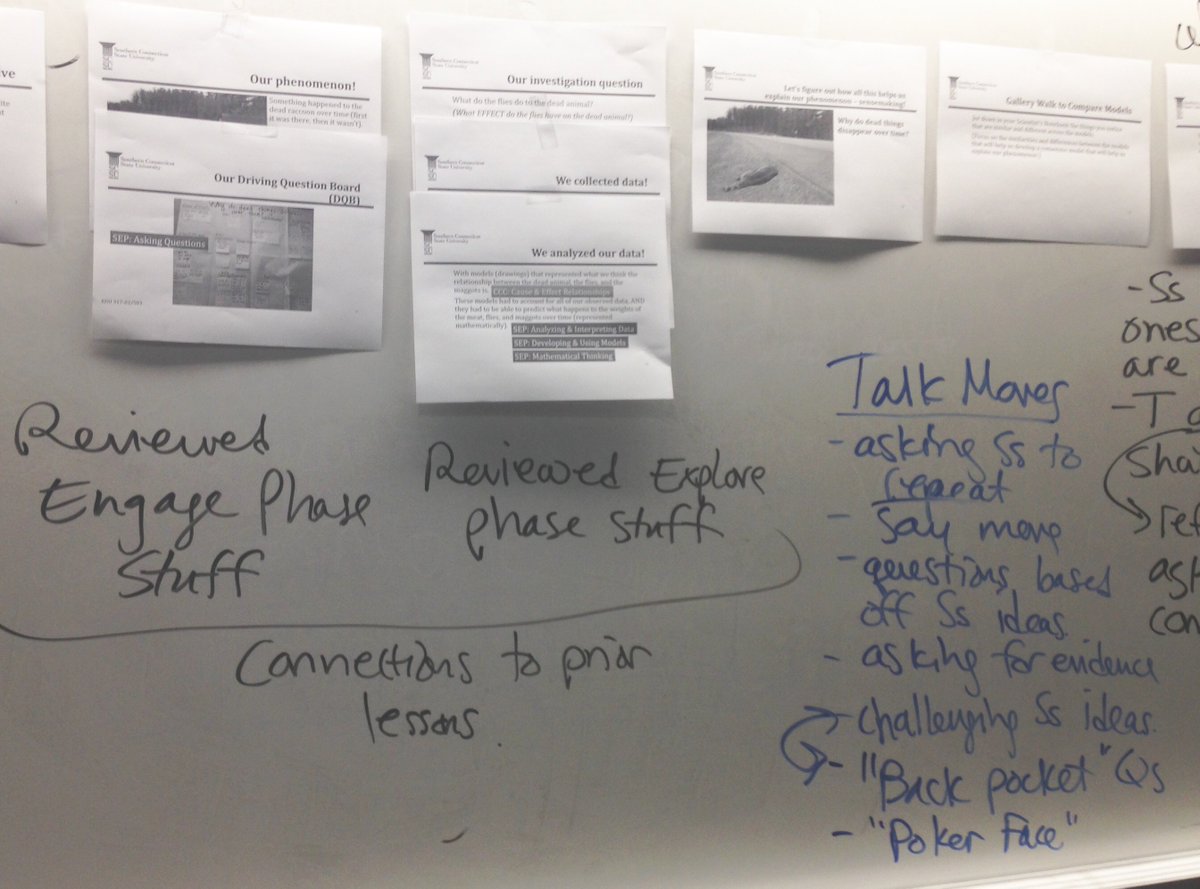 ve
Southern Connecticut
State University
Our phenomenon!
Something happened to the
dead raccoon over time (first
it was there, then it wasn't).
Southern Connecticut
State University
Our Driving Question Board
(DQB)
SEP: Asking Questions
Southern Connecticut
State University
Our investigation question
What do the flies do to the dead animal?
(What EFFECT do the flies have on the dead animal?)
Southern Connecticut
State University
We collected data!
Southern Connecticut
State University
We analyzed our data!
With models (drawings) that represented what we think the
relationship between the dead animal, the flies, and the
maggots is. CCC: Cause & Effect Relationships
These models had to account for all of our observed data, AND
they had to be able to predict what happens to the weights of
the meat, flies, and maggots over time (represented
mathematically).
SEP: Analyzing & Interpreting Data
SEP: Developing & Using Models
SEP: Mathematical Thinking
Southern Connecticut
State University
Let's figure out how all this helps us
explain our phenomenon - sensemaking!
Why do dead things
disappear over time?
Southern Connecticut
State University
Gallery Walk to Compare Models
Reviewed
Engage Phase
Stuff
Reviewed Explore
phase stuff
Connections to prior
lessons.
Talk Moves
- asking Ss to
repeat
- say more
- questions based
off Ss ideas.
- asking for evidence
- challenging Ss ideas.
- "Back pocket" Qs
- "Poker Face"
- Ss
ones
are
- T
Sha
ref
ask
con